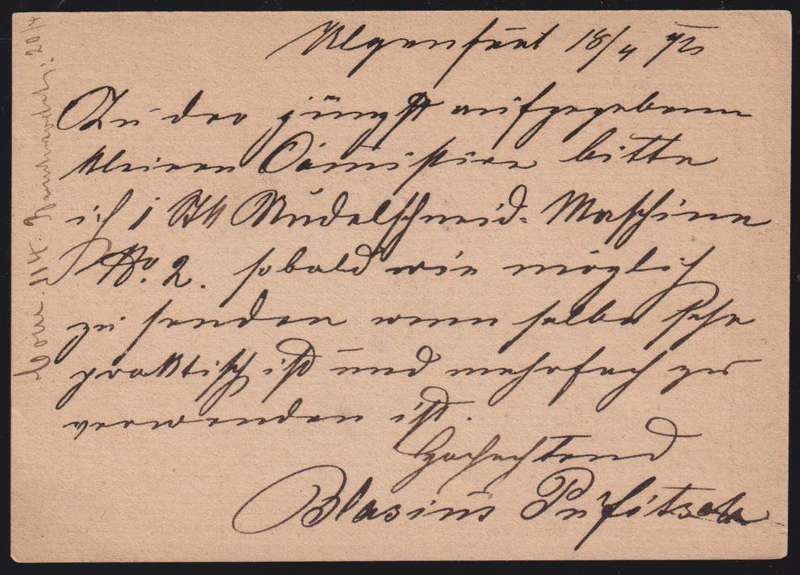 Klgenfürt 18/4 92
Zu der jüngst aufgegebenen
kleinen Commission bitte
ich 1 Stk Nudelschneid-Maschine
No. 2. sobald wie möglich
zu senden wenn selbe sehr
praktisch ist und mehrfach zu
verwenden ist.
Hochachtend
Blasius